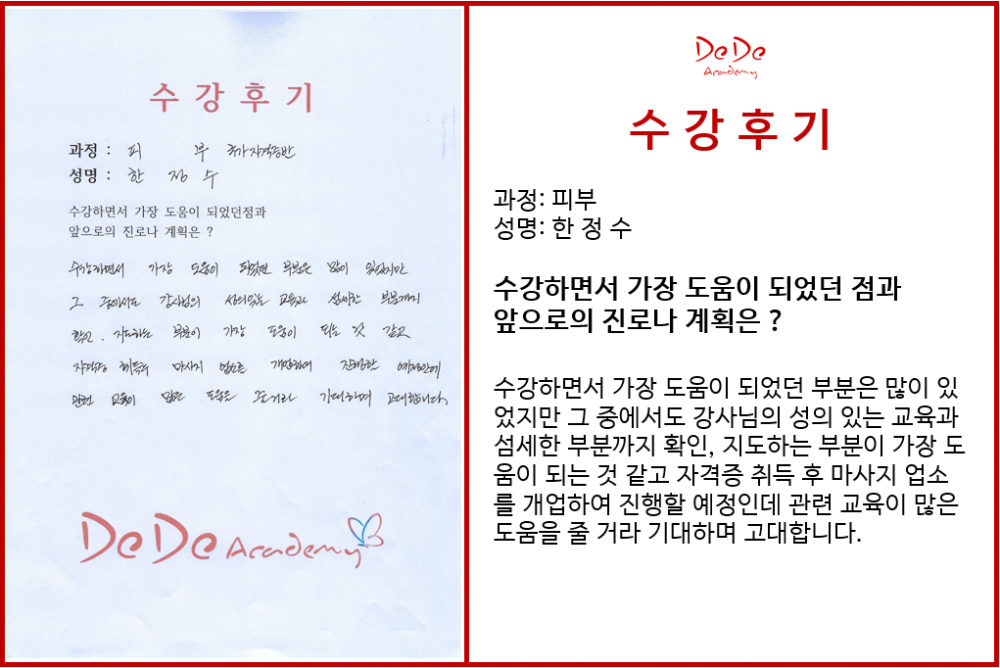 수강후기
과정 : 피 부 국가자격증반
성명 : 한 정 수
수강하면서 가장 도움이 되었던점과
앞으로의 진로나 계획은 ?
수강하면서 가장 도움이 되었던 부분은 많이 있었지만
그 중에서도 강사님의 성의있는 교육과 섬세한 부분까지
확인, 지도하는 부분이 가장 도움이 되는 것 같고
자격증 취득후 마사지 업소를 개업하여 진행할 예정인데
관련 교육이 많은 도움을 줄거라 기대하며 고대합니다.
DeDe Academy
DeDe
Academy
수강후기
과정: 피부
성명: 한 정 수
수강하면서 가장 도움이 되었던 점과
앞으로의 진로나 계획은 ?
수강하면서 가장 도움이 되었던 부분은 많이 있
었지만 그 중에서도 강사님의 성의 있는 교육과
섬세한 부분까지 확인, 지도하는 부분이 가장 도
움이 되는 것 같고 자격증 취득 후 마사지 업소
를 개업하여 진행할 예정인데 관련 교육이 많은
도움을 줄 거라 기대하며 고대합니다.